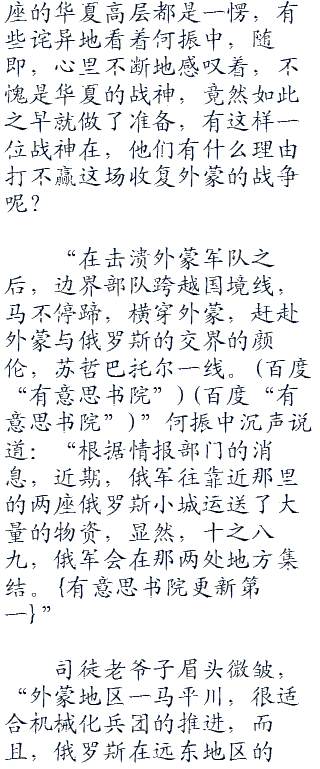 座的华夏高层都是一愣，有
些诧异地看着何振中，随
即，心里不断地感叹着，不
愧是华夏的战神，竟然如此
之早就做了准备，有这样一
位战神在，他们有什么理由
打不赢这场收复外蒙的战争
呢？
“在击溃外蒙军队之
后，边界部队跨越国境线，
马不停蹄，横穿外蒙，赶赴
外蒙与俄罗斯的交界的颜
伦，苏哲巴托尔一线。(百度
“有意思书院”)(百度“有
意思书院”)”何振中沉声说
道：“根据情报部门的消
息，近期，俄军往靠近那里
的两座俄罗斯小城运送了大
量的物资，显然，十之八
九，俄军会在那两处地方集
结。{有意思书院更新第
一}”
司徒老爷子眉头微皱，
“外蒙地区一马平川，很适
合机械化兵团的推进，而
且，俄罗斯在远东地区的